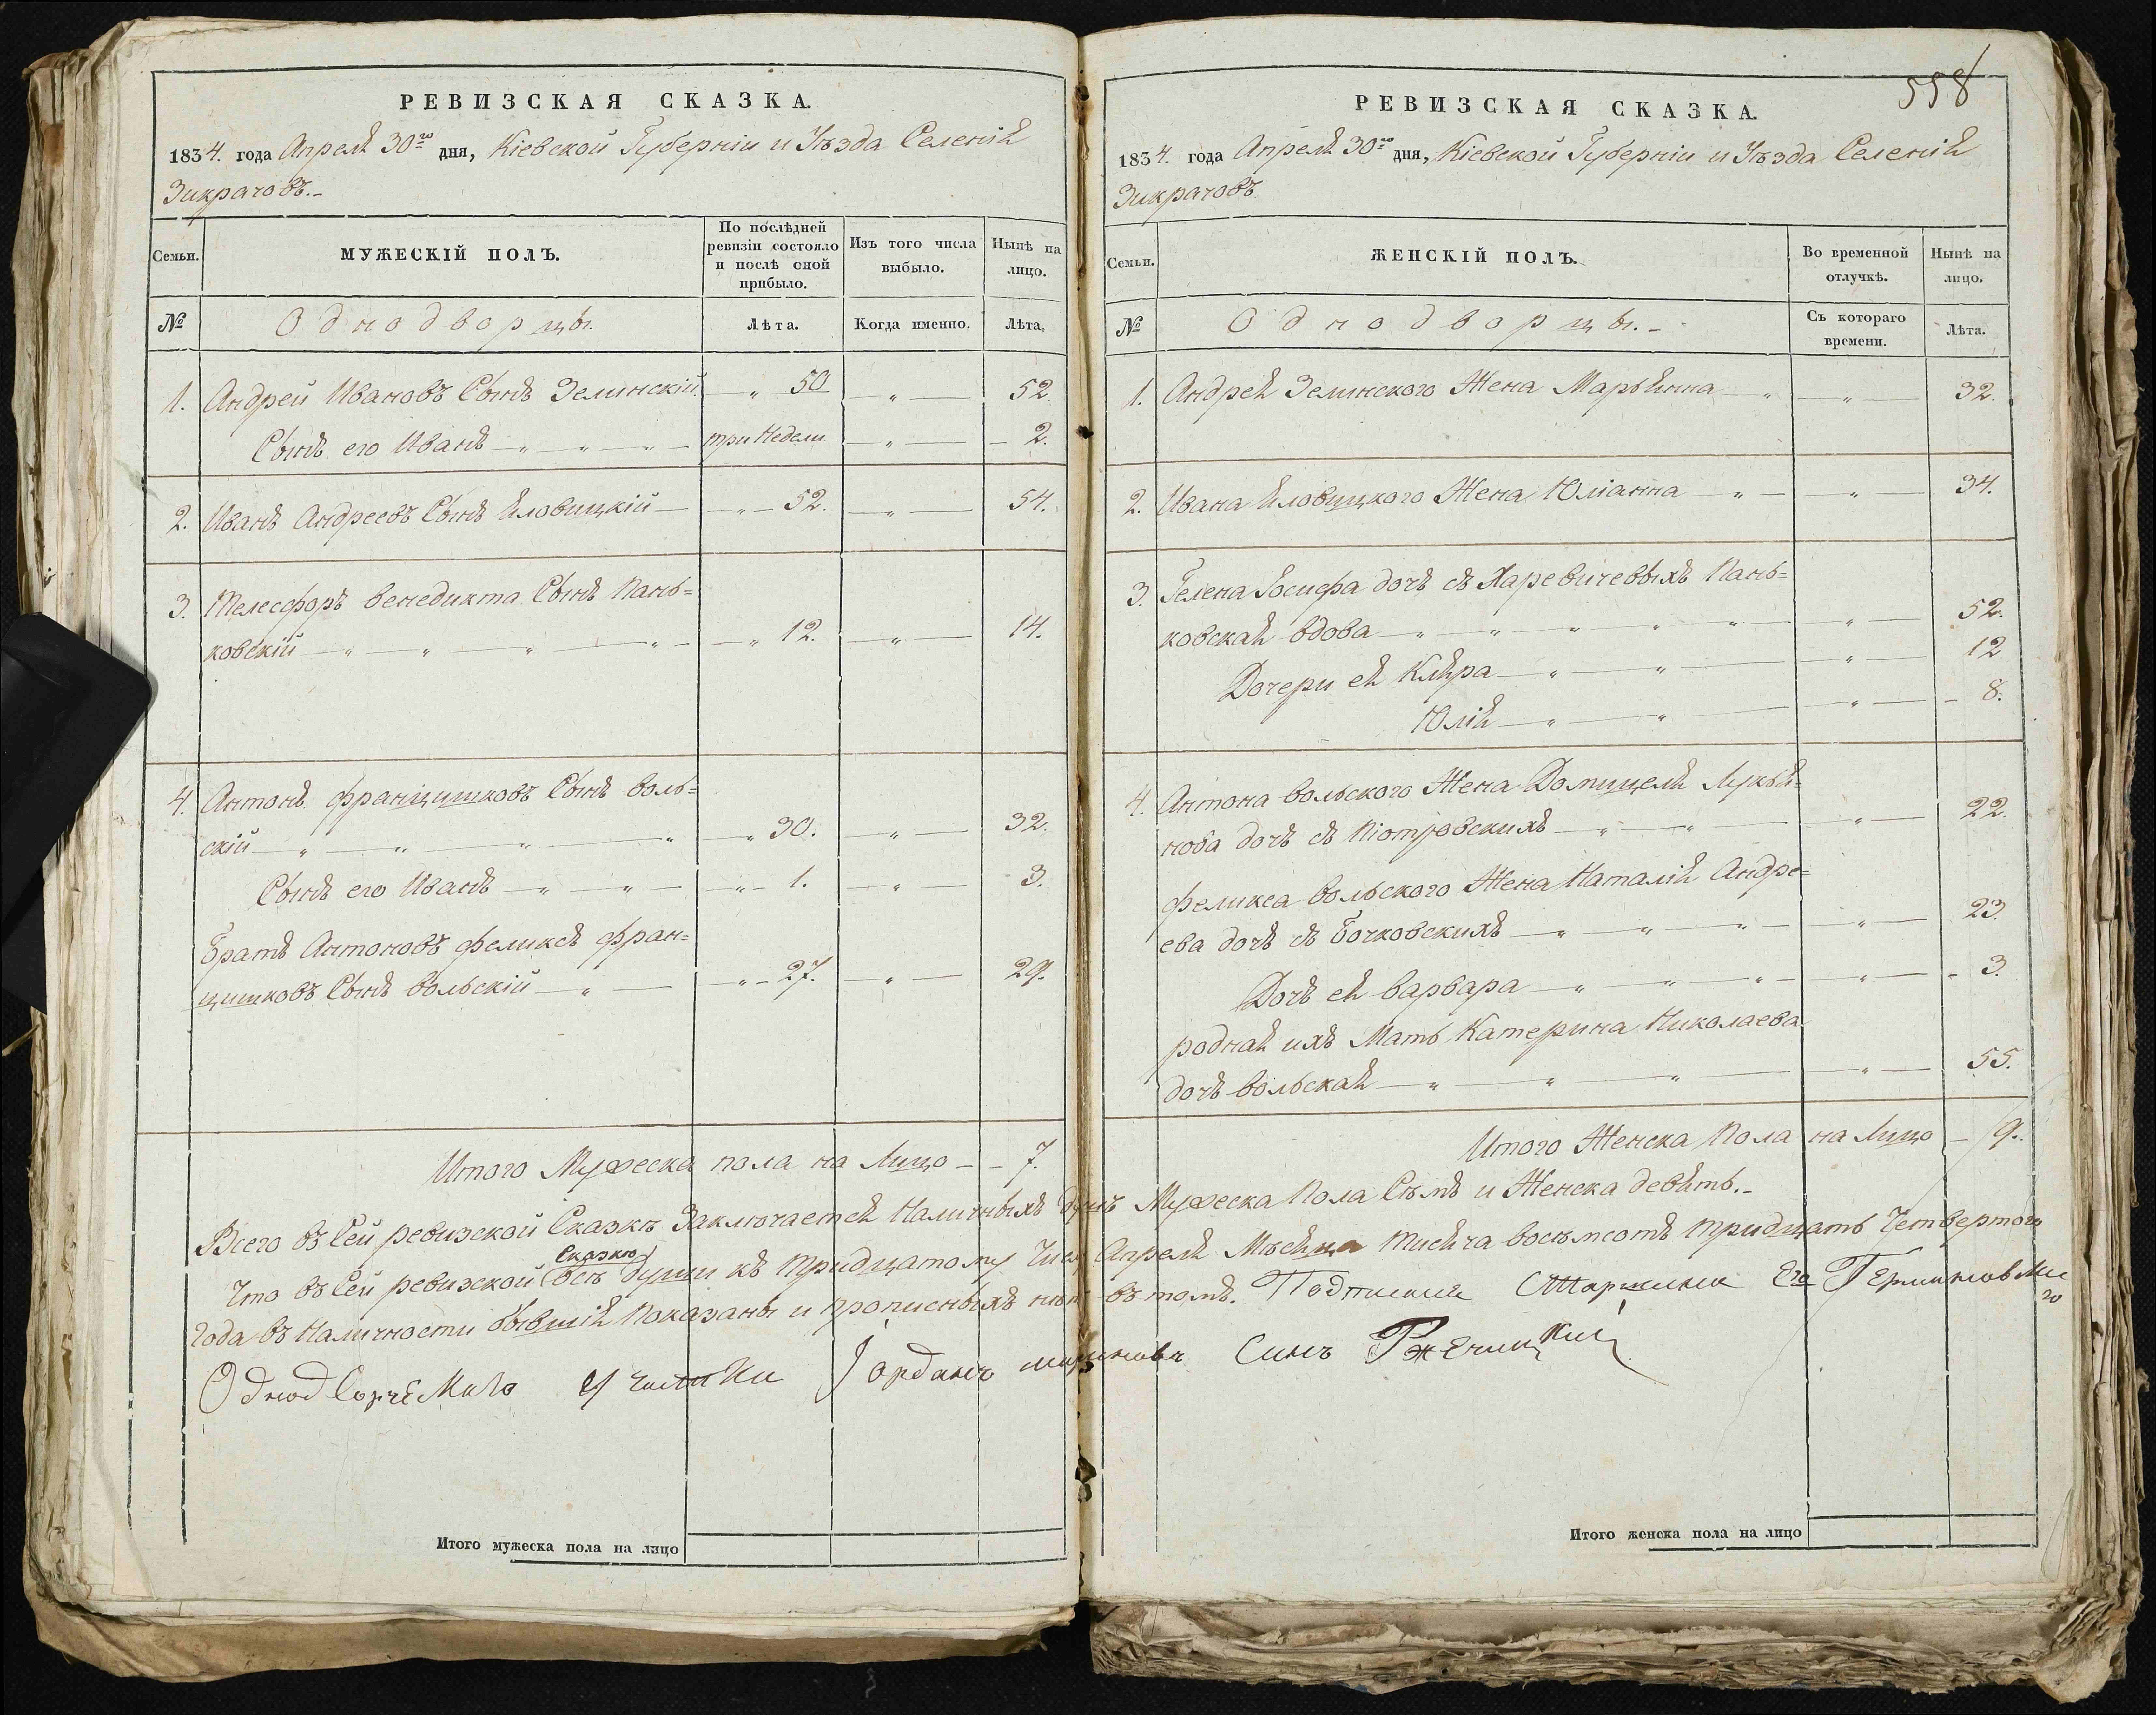 РЕВИЗСКАЯ СКАЗКА.
1834. года Апреля 30го дня, Кіевской Губерніи и Уѣзда Селенія
Зикрачовъ.
Семьи.
МУЖЕСКІЙ ПОЛЪ.
По послѣдней ревизіи состояло и послѣ оной прибыло.
Изъ того числа выбыло.
Нынѣ на лицо.
№
Однодворцы.
Лѣта.
Когда именно.
Лѣта.
1. Андрей Ивановъ Сынъ Зелинскій 50 52.
Сынъ его Иванъ три Недели 2.
2. Иванъ Андреевъ Сынъ Иловицкій 52. 54.
3. Телесфоръ венедикта Сынъ Пань=
ковскій 12. 14.
4. Антонъ францишковъ Сынъ воль=
скій 30. 32.
Сынъ его Иванъ 1. 3.
братъ Антоновъ феликсъ фран=
цишковъ Сынъ вольскій 27. 29.
Итого Мужеска пола на Лицо 7.
Итого мужеска пола на лицо
558
РЕВИЗСКАЯ СКАЗКА.
1834. года Апреля 30го дня, Кіевской Губерніи и Уѣзда Селенія
Зикрачовъ
Семьи.
ЖЕНСКІЙ ПОЛЪ.
Во временной отлучкѣ.
Нынѣ на лицо.
№
Однодворцы.
Съ котораго времени.
Лѣта.
1. Андрея Зелинского Жена Марьянна 32.
2. Ивана Иловицкого Жена Юліанна 34.
3. Гелена Іосифа дочъ съ Харевичевыхъ Пань=
ковская вдова 52.
Дочери ея Кляра 12
Юлія 8.
4. Антона вольского Жена Домицеля Лукья=
нова дочъ съ Піотровскихъ 22.
феликса вольского Жена Наталія Андре=
ева дочъ съ бочковскихъ 23.
Дочъ ея варвара 3.
родная ихъ Мать Катерина Николаева
дочъ вольская 55.
Итого Женска Пола на Лицо 9.
Всего въ Сей ревизской Сказкѣ Заключается Наличныхъ душъ Мужеска Пола Сѣмъ и Женска девять.
Сказкою
Что въ Сей ревизской всѣ души къ тридцатому Числу Апреля Мѣсяца тисяча восемсотъ тридцать Четвертого
Года въ Наличности бывшія Показаны и прописныхъ нѣтъ въ томъ. Подписали Старшина
Іорданъ Синъ Рженицкий
Итого женска пола на лицо